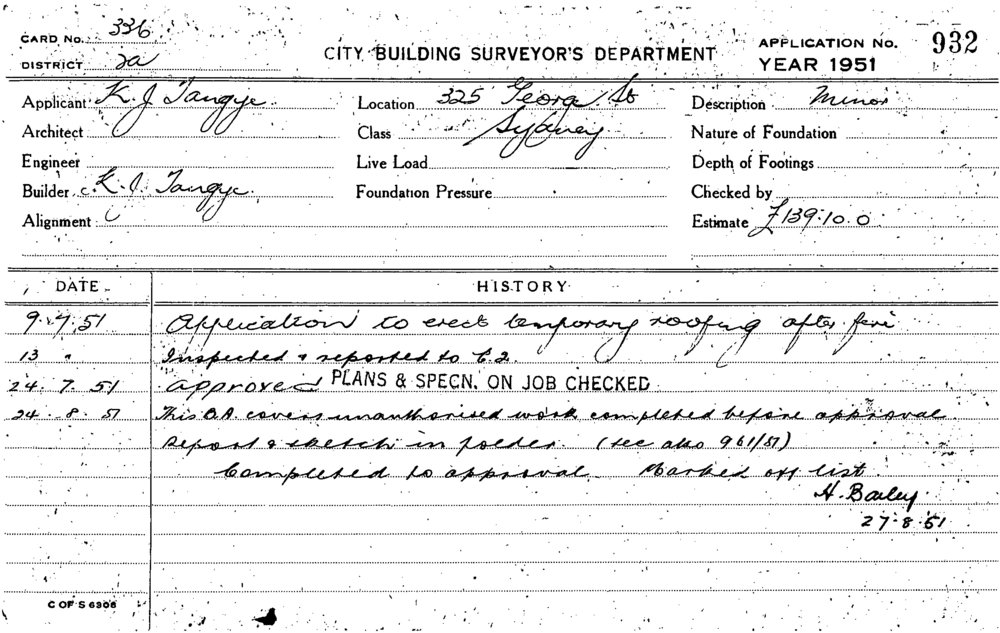 CARD No. 336
DISTRICT 2a
CITY BUILDING SURVEYOR'S DEPARTMENT
APPLICATION No. 932
YEAR 1951
Applicant K. J. Tangye
Location 325 George St
Description Minor
Architect
Class Sydney
Nature of Foundation
Engineer
Live Load
Depth of Footings
Builder K. J. Tangye
Foundation Pressure
Checked by
Alignment
Estimate £139.10.0
DATE HISTORY
9.7.51 Application to erect temporary roofing after fire
13 " Inspected & reported to C2
24.7.51 approved PLANS & SPECN. ON JOB CHECKED
24.8.51 This B.A. covers unauthorised work completed before approval
Report & sketch in folder. (see also 961/51)
Completed to approval. Marked off list
H. Bailey
27.8.51
C OF S 6306